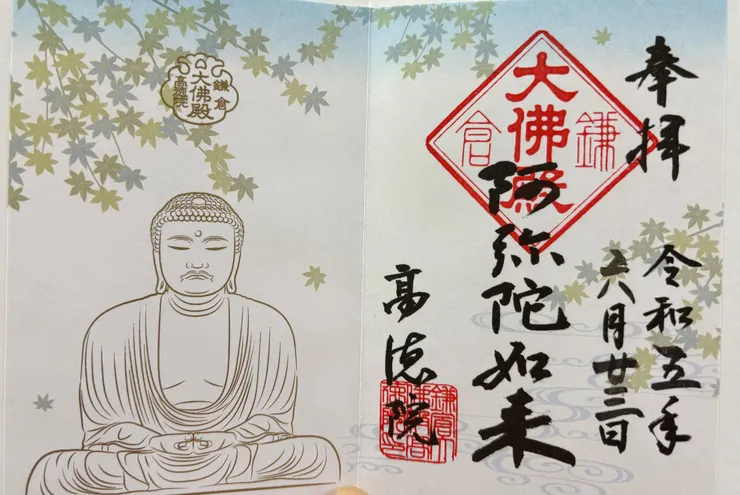 奉拝
令和五年
六月廿三日
鎌倉
大佛殿
阿弥陀如来
高徳院
鎌倉
大佛殿
高徳院